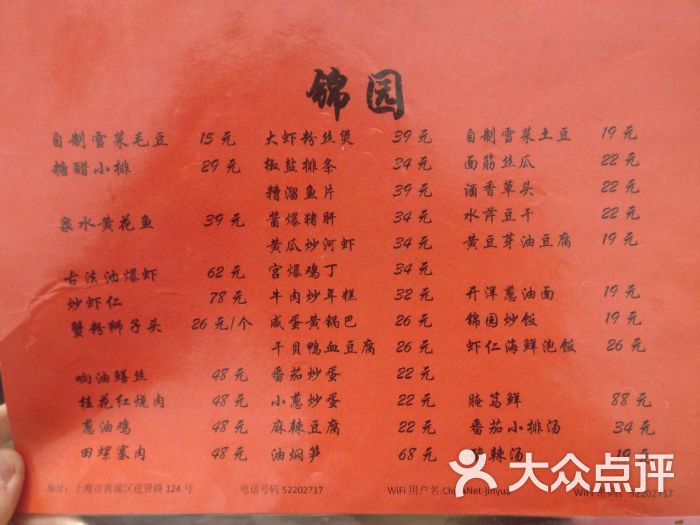 锦园
自制雪菜毛豆 15元
糖醋小排 29元
泉水黄花鱼 39元
古法油爆虾 62元
炒虾仁 78元
蟹粉狮子头 26元/个
响油鳝丝 48元
桂花红烧肉 48元
葱油鸡 48元
田螺塞肉 48元
大虾粉丝煲 39元
椒盐排条 34元
糟溜鱼片 39元
酱爆猪肝 34元
黄瓜炒河虾 34元
宫爆鸡丁 34元
牛肉炒年糕 32元
咸蛋黄锅巴 26元
干贝鸭血豆腐 26元
番茄炒蛋 22元
小葱炒蛋 22元
麻辣豆腐 22元
油焖笋 68元
自制雪菜土豆 19元
面筋丝瓜 22元
酒香草头 22元
水芹豆干 22元
黄豆芽油豆腐 19元
开洋葱油面 19元
锦园炒饭 19元
虾仁海鲜泡饭 26元
腌笃鲜 88元
番茄小排汤 34元
辣汤 19元
地址:上海市黄浦区进贤路124号
电话号码 52202717
WiFi用户名:ChinaNet-jinyua
WiFi 52202717
大众点评